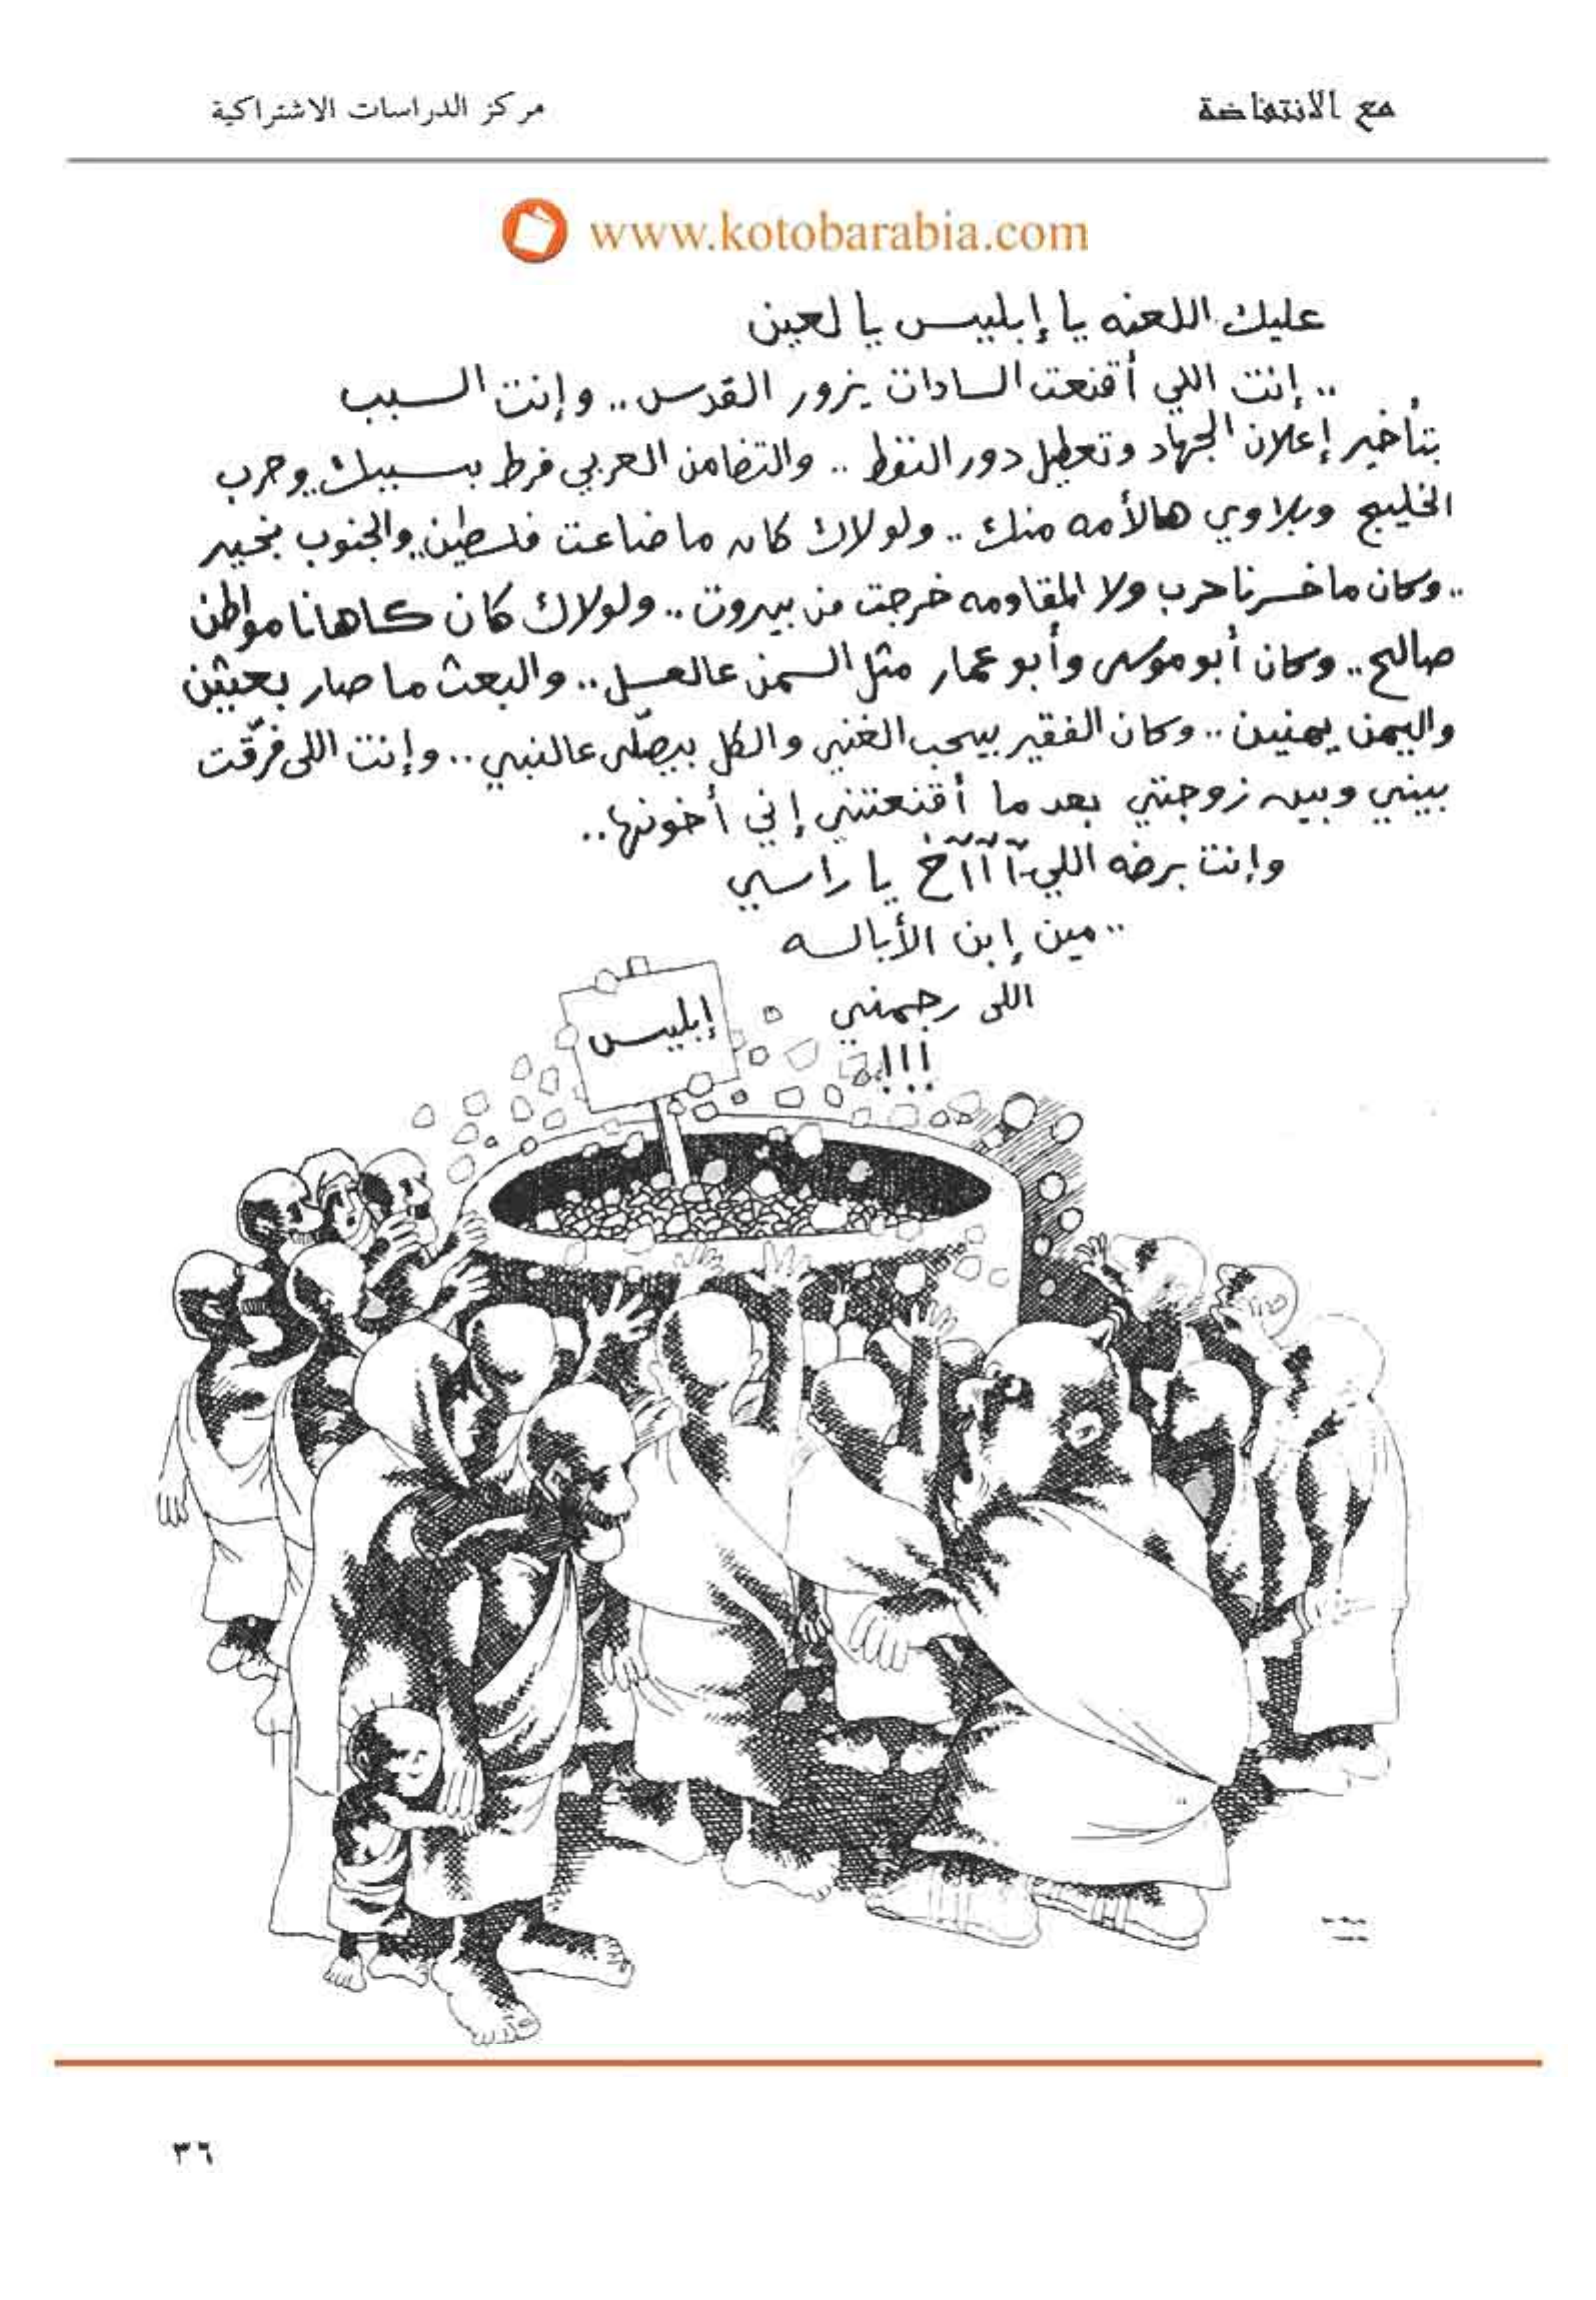 مع الانتفاضة
مركز الدراسات الاشتراكية
www.kotobarabia.com
عليك اللعنه يا إبليس يا لعين
.. إنت اللي أقنعت السادات يزور القدس .. وإنت السبب
بتأخير إعلان الجهاد وتعطيل دور النفط .. والتضامن العربي فرط بسببك .. وحرب
الخليج وبلاوي هالأمه منك .. ولولاك كان ما ضاعت فلسطين .. والجنوب بخير
.. وكان ما خسرنا حرب ولا المقاومه خرجت من بيروت .. ولولاك كان كاهانا مواطن
صالح .. وكان أبو موسى وأبو عمار مثل السمن عالعسل .. والبعث ما صار بعثين
واليمن يمنين .. وكان الفقير بيحب الغني والكل بيصلّي عالنبي .. وإنت اللي فرّقت
بيني وبين زوجتي بعد ما أقنعتني إني أخونها ..
وإنت برضه اللي .. آآآآخ يا راسي
.. مين إبن الأبالسه
اللي رجمني
!!!
إبليس
٣٦